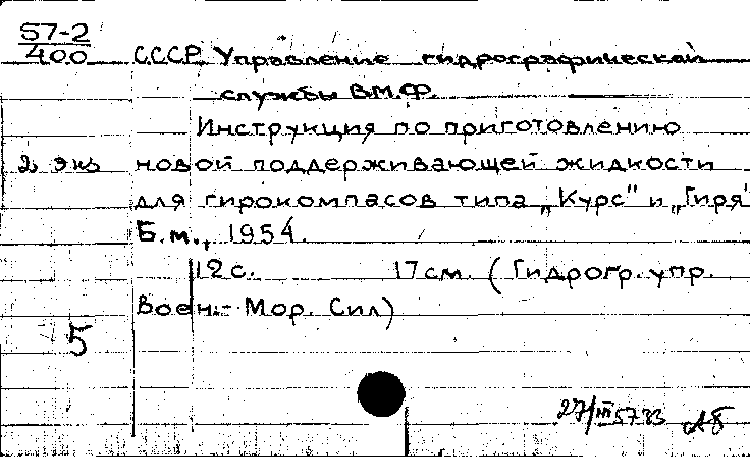 57-2
400
СССР. Управление гидрографической
службы В.М.Ф.
Инструкция по приготовлению
2 экз новой поддерживающей жидкости
для гирокомпасов типа „Курс" и „Гиря"
Б.м., 1954.
12 с. 17 см. (Гидрогр. упр.
Воен.- Мор. Сил)
5
27/III 5733